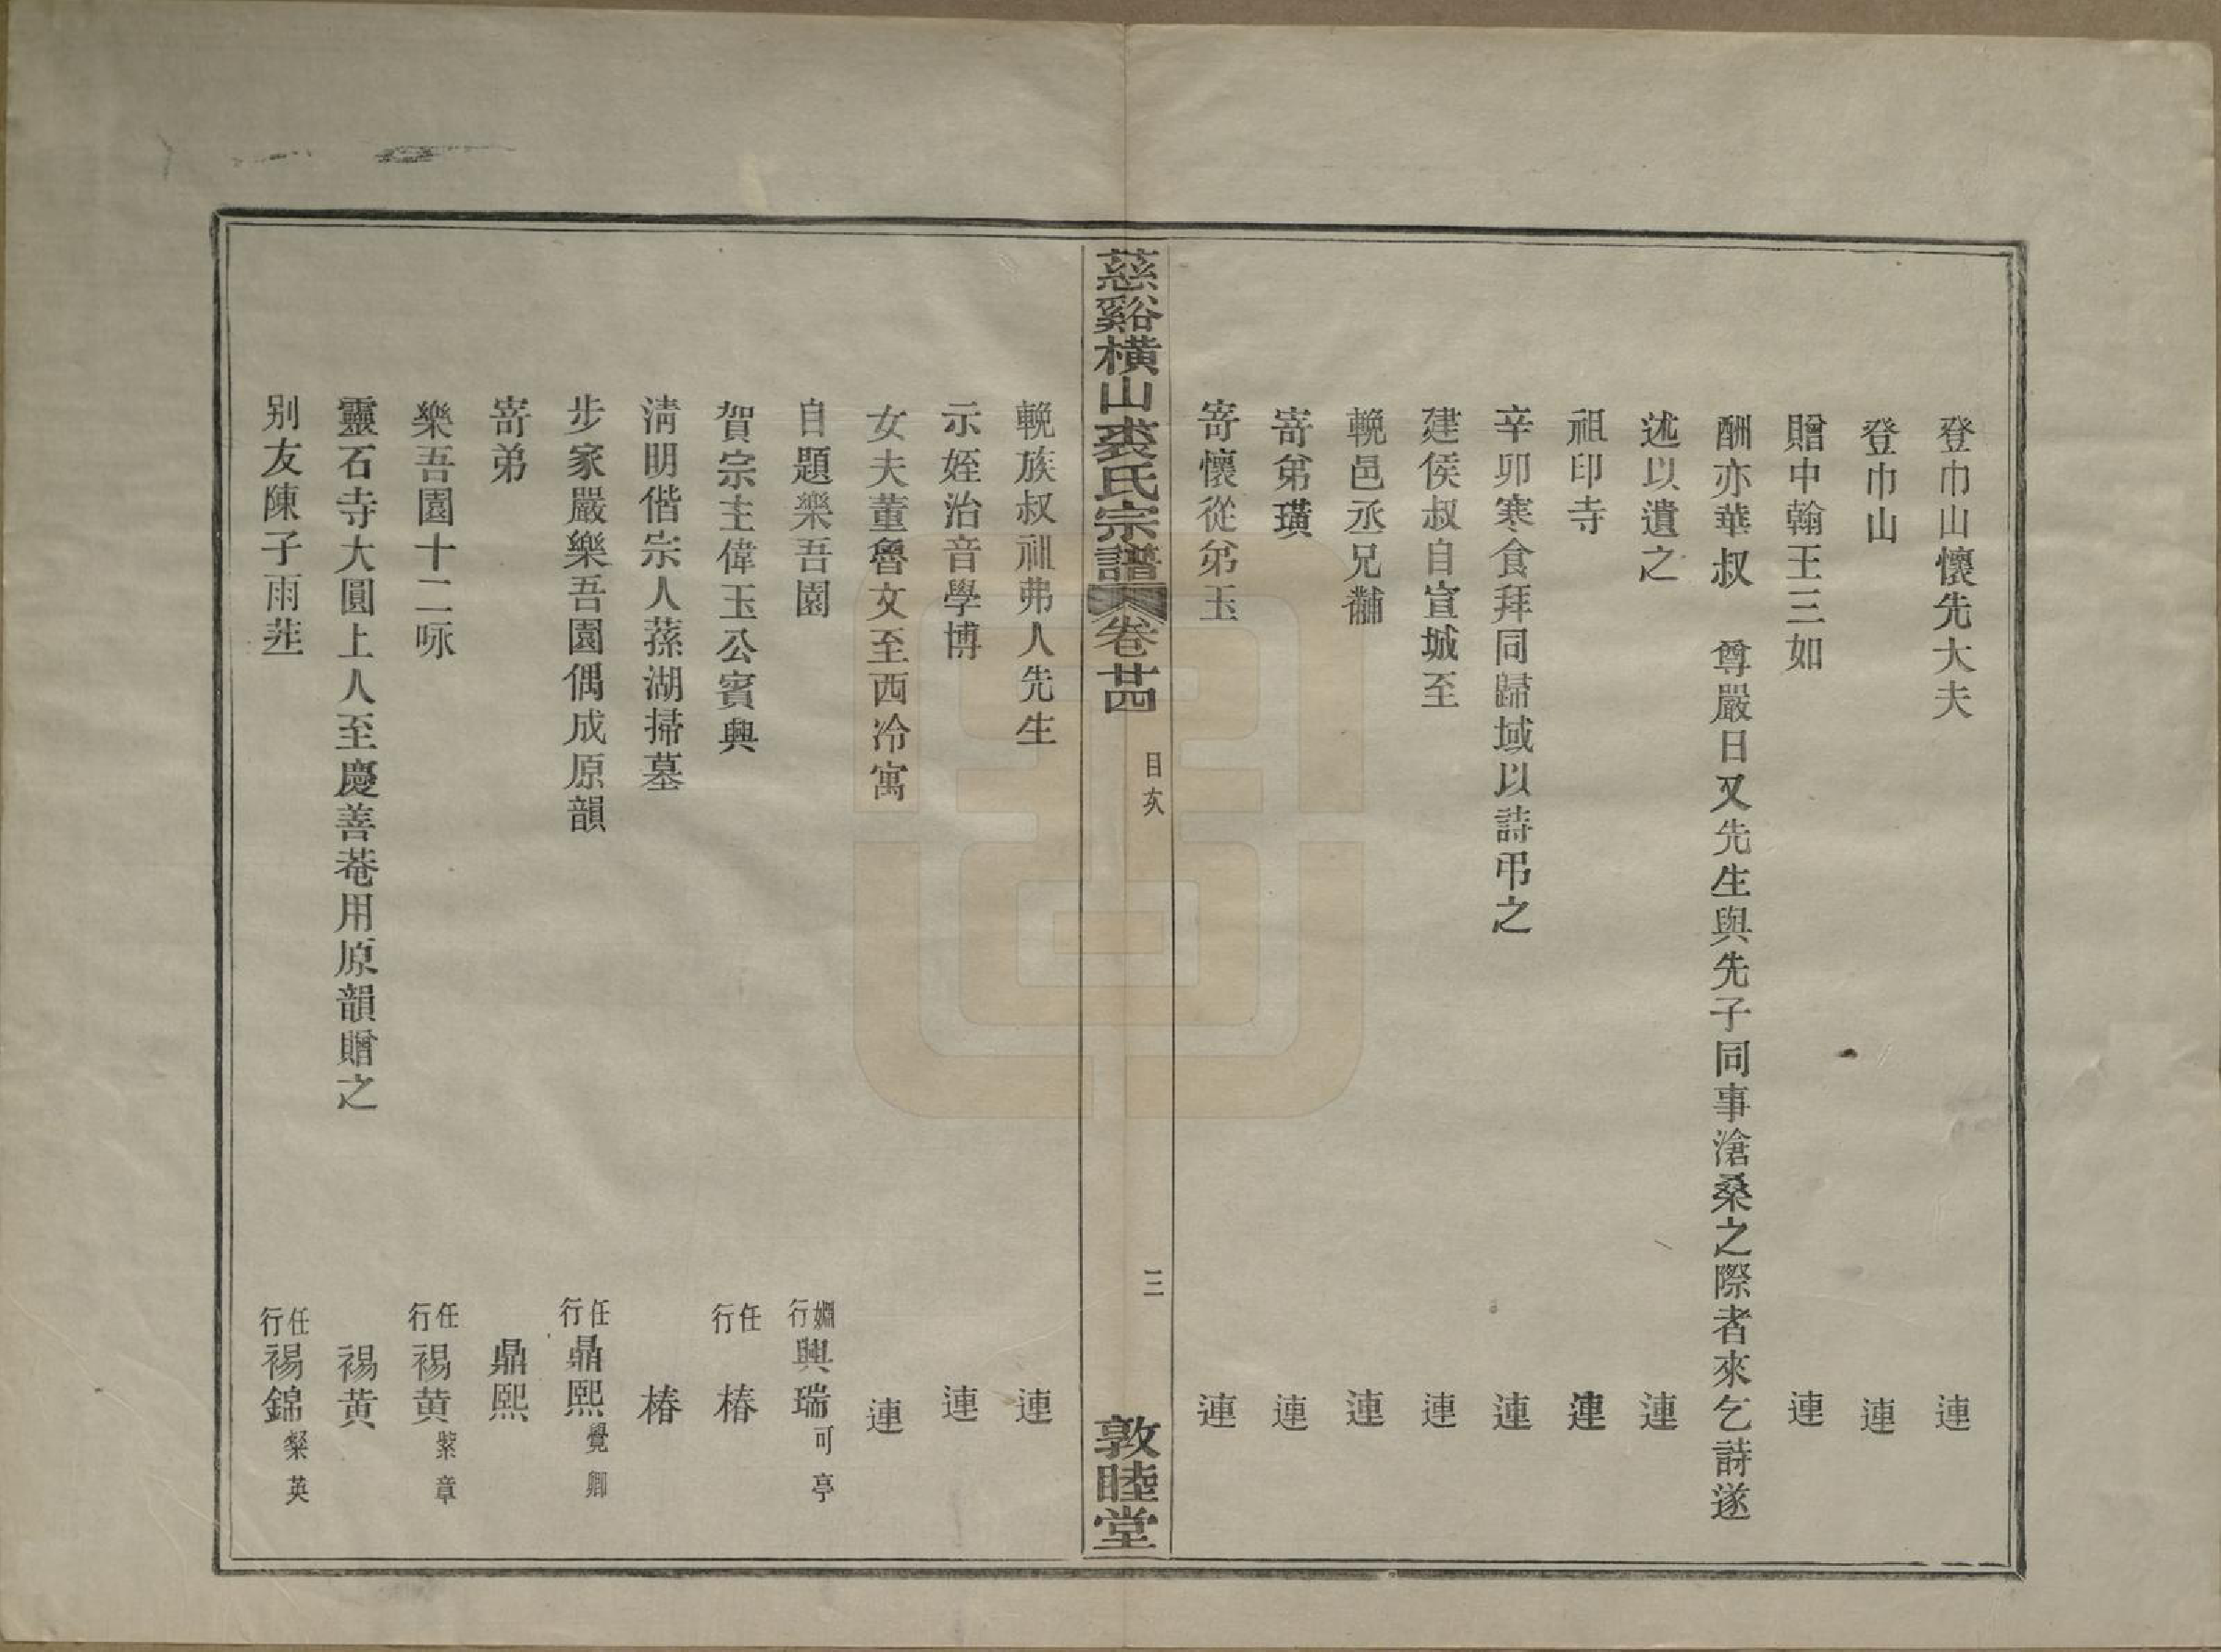 登巾山懷先大夫 連
登巾山 連
贈中翰王三如 連
酬亦華叔 尊嚴日又先生與先子同事滄桑之際者來乞詩遂
述以遺之 連
祖印寺 連
辛卯寒食拜同歸域以詩弔之 連
建侯叔自宣城至 連
輓邑丞兄黼 連
寄弟璜 連
寄懷從弟玉 連
慈谿橫山裘氏宗譜 卷廿四 目次 三 敦睦堂
輓族叔祖弗人先生 連
示姪治音學博 連
女夫董魯文至西冷寓 連
自題樂吾園 嫺行 興瑞 可亭
賀宗主偉玉公賓興 任行 椿
淸明偕宗人蓀湖掃墓 椿
步家嚴樂吾園偶成原韻 任行 鼎熙 覺卿
寄弟 鼎熙
樂吾園十二咏 任行 裼黃 紫章
靈石寺大圓上人至慶善菴用原韻贈之 裼黃
别友陳子雨莊 任行 裼錦 粲英